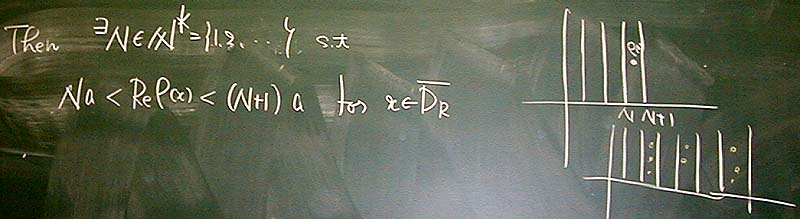 Then ∃N∈ℕ* = {1,2,...} s.t
Na < Re ρ(x) < (N+1) a for x∈D̅_R
ρ(x)
N N+1